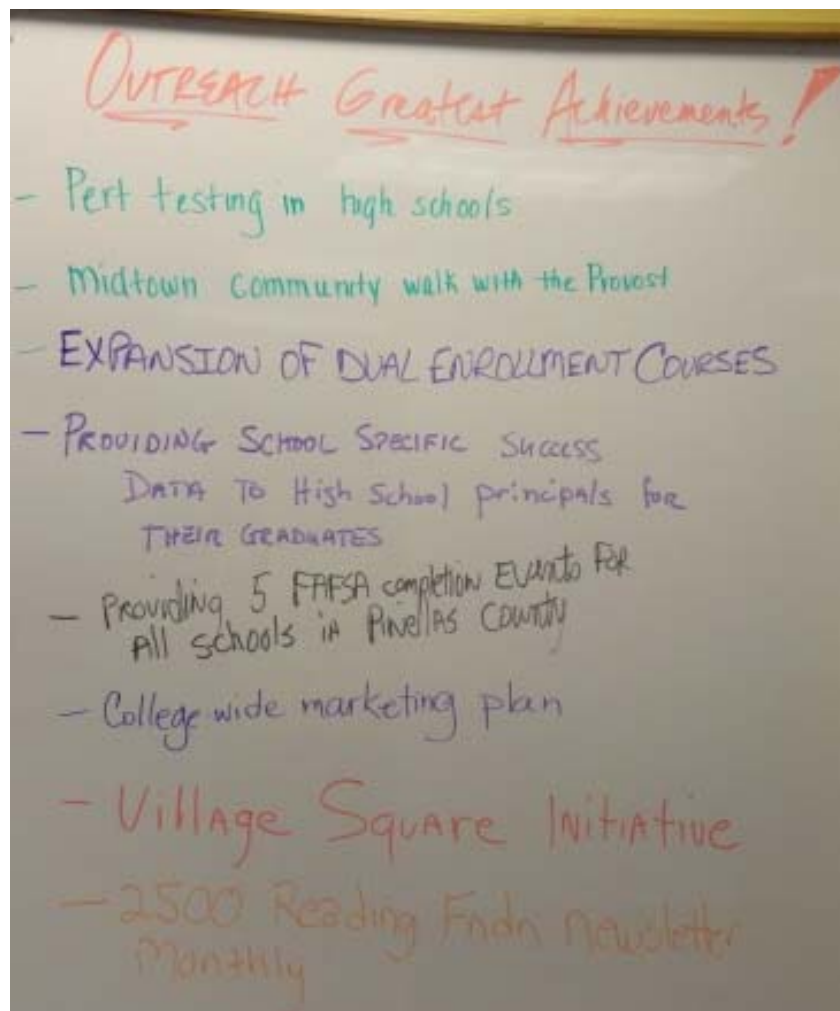 OUTREACH Greatest Achievements!
- Pert testing in high schools
- Midtown Community walk with the Provost
- EXPANSION OF DUAL ENROLLMENT COURSES
- PROVIDING SCHOOL SPECIFIC SUCCESS
DATA TO High School principals for
THEIR GRADUATES
- Providing 5 FAFSA completion Events For
All schools in Pinellas County
- College wide marketing plan
- Village Square Initiative
- 2500 Reading Fndn Newsletter
Monthly